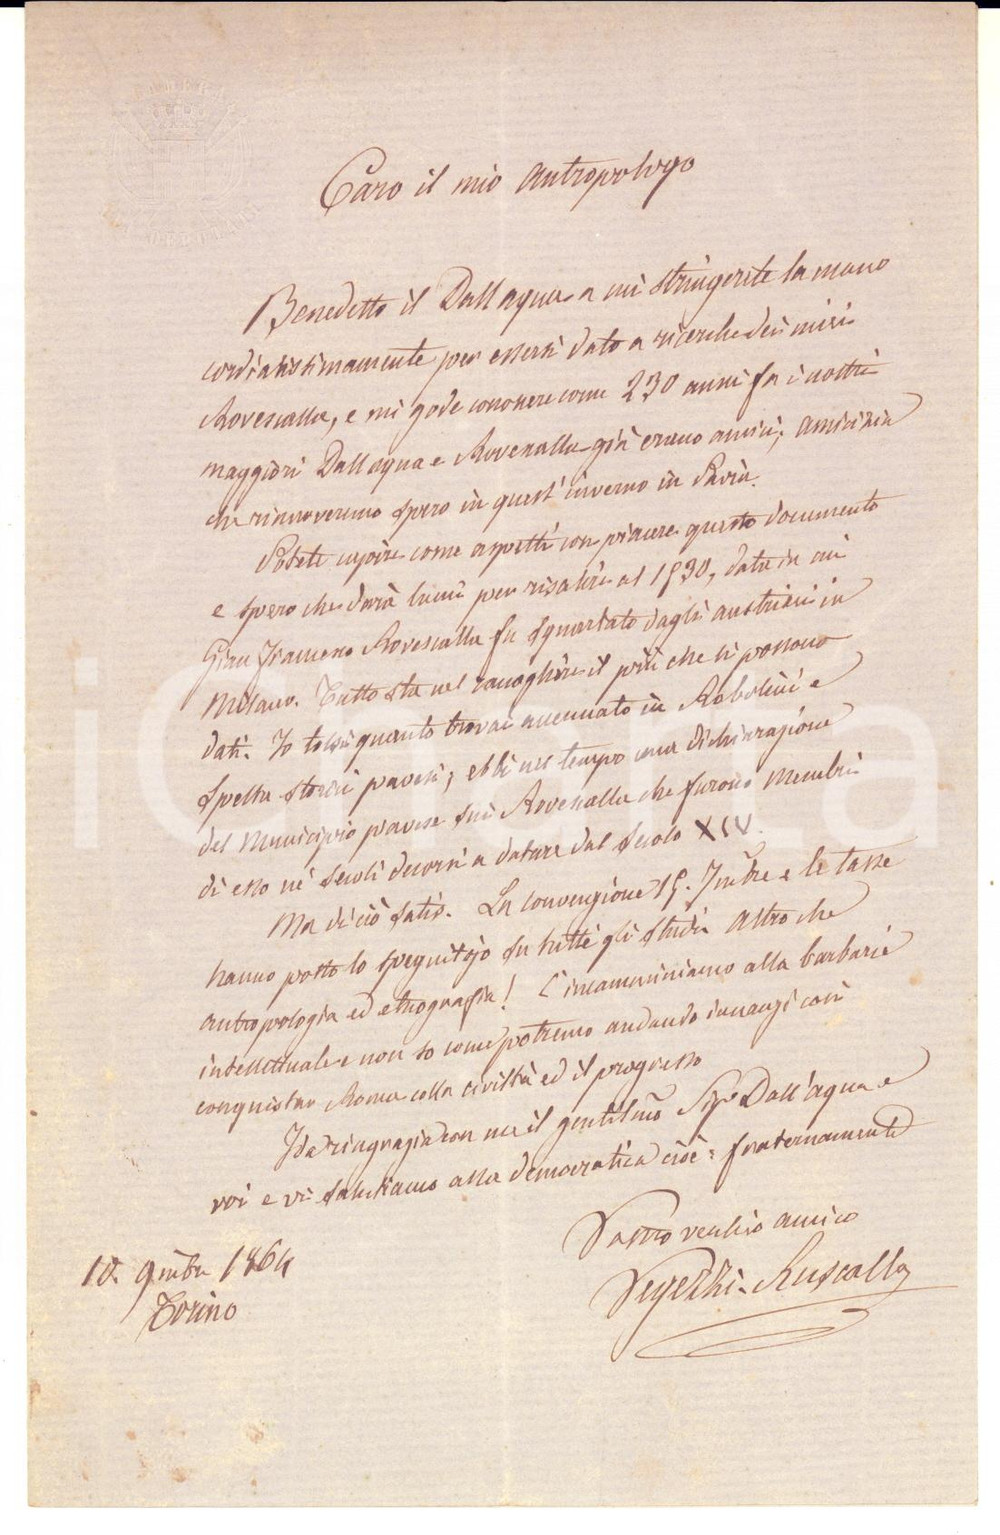 Caro il mio antropologo
Benedetto il Dall'aqua a cui stringerete la mano
cordialissimamente per essersi dato a ricerche dei miei
Rovescalla, e mi gode conoscere come 230 anni fa i nostri
maggiori Dall'aqua e Rovescalla già erano amici; amicizia
che rinnoveremo spero in quest'inverno in Pavia.
Potete capire come aspetti con piacere questo documento
e spero che darà lumi per risalire al 1530, data in cui
Gian Rovescalla fu squartato dagli austriaci in
Milano. Tutto sta nel raccogliere il più che si possono
dati. Io tolsi quanto trovai accennato in Robolini e
Spelta storici pavesi; ebbi nel tempo una dichiarazione
del Municipio pavese sui Rovescalla che furono Membri
di esso ne' secoli decorsi a datare dal secolo XIV.
Ma di ciò satis. La convenzione 15. 7mbre e le tasse
hanno posto lo spegnitojo su tutti gli studi altro che
antropologia ed etnografia! C'incamminiamo alla barbarie
intellettuale e non so come potremo andando innanzi così
conquistar Roma colla civiltà ed il progresso
Ida ringrazia con me il gentilmo Sigr Dall'aqua e
voi e vi salutiamo alla democratica cioè: fraternamente
Vostro vecchio amico
Vegezzi-Ruscalla
10. 9mbre 1864
Torino
iCharta